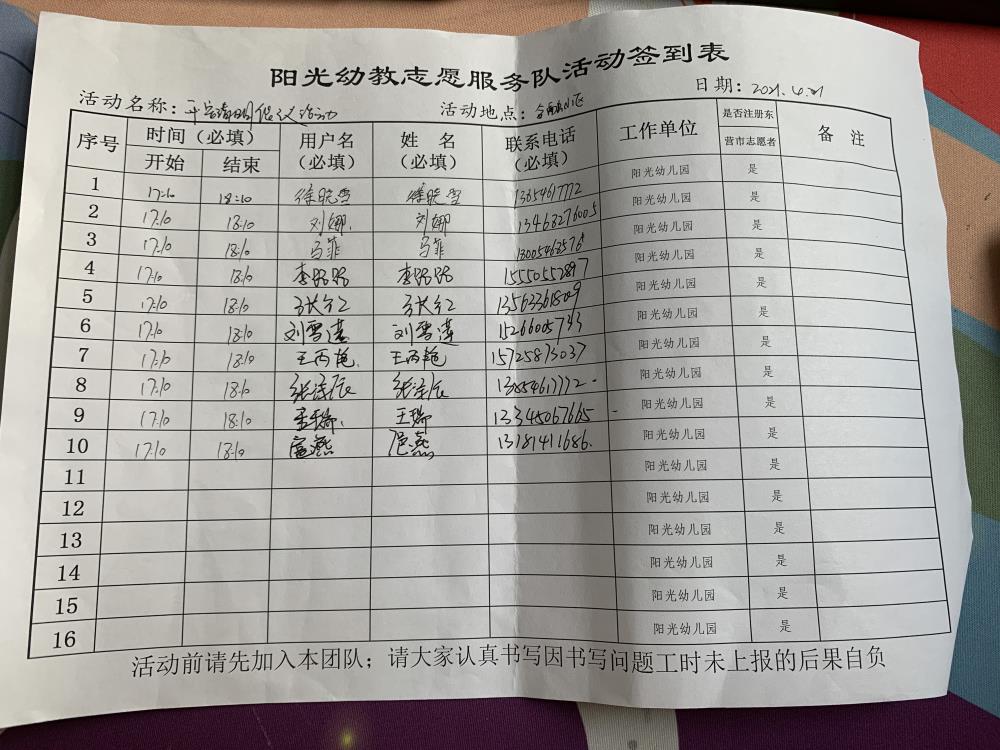 阳光幼教志愿服务队活动签到表
活动名称：平安清明倡议活动 活动地点： 日期：2021.4.21
序号 时间（必填） 用户名（必填） 姓 名（必填） 联系电话（必填） 工作单位 是否注册东营市志愿者 备 注
开始 结束
1 17:10 18:10 徐晓雪 徐晓雪 13654617712 阳光幼儿园 是
2 17:10 18:10 刘娜. 刘娜 13468276005 阳光幼儿园 是
3 17:10 18:10 马菲 马菲 阳光幼儿园 是
4 17:10 18:10 李照照 李照照 15550552897 阳光幼儿园 是
5 17:10 18:10 张红 张红 13563361809 阳光幼儿园 是
6 17:10 18:10 刘雪莲 刘雪莲 1526605733 阳光幼儿园 是
7 17:10 18:10 王丙艳. 王丙艳 15725873037 阳光幼儿园 是
8 17:10 18:10 阳光幼儿园 是
9 17:10 18:10 王瑞. 王瑞 阳光幼儿园 是
10 17:10 18:10 扈燕 扈燕 13181411686. 阳光幼儿园 是
11 阳光幼儿园 是
12 阳光幼儿园 是
13 阳光幼儿园 是
14 阳光幼儿园 是
15 阳光幼儿园 是
16 阳光幼儿园 是
活动前请先加入本团队；请大家认真书写因书写问题工时未上报的后果自负